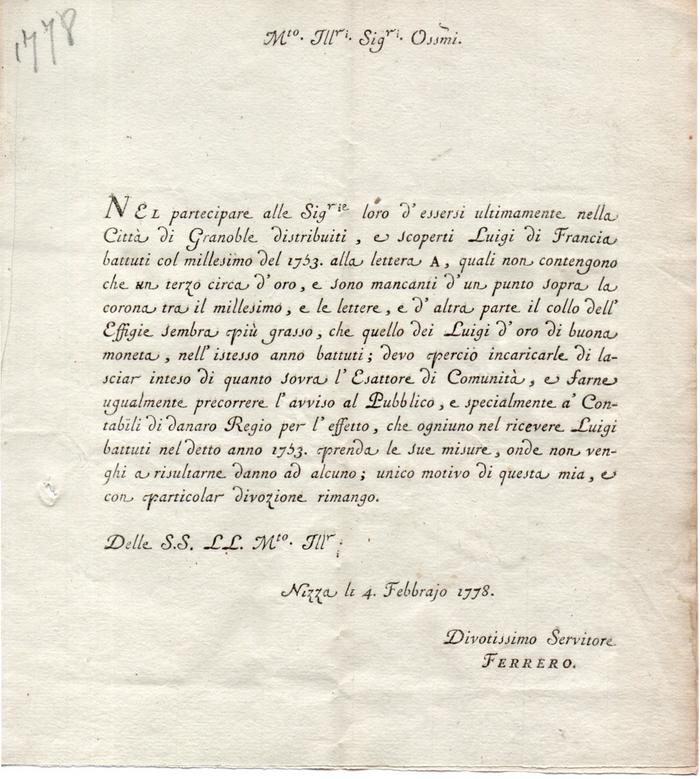 1778
Mto. Illri. Sigri. Ossmi.
NEL partecipare alle Sigrie loro d'essersi ultimamente nella
Città di Granoble distribuiti, e scoperti Luigi di Francia
battuti col millesimo del 1753. alla lettera A, quali non contengono
che un terzo circa d'oro, e sono mancanti d'un punto sopra la
corona tra il millesimo, e le lettere, e d'altra parte il collo dell'
Effigie sembra più grasso, che quello dei Luigi d'oro di buona
moneta, nell'istesso anno battuti; devo perciò incaricarle di la-
sciar inteso di quanto sovra l'Esattore di Comunità, e farne
ugualmente precorrere l'avviso al Pubblico, e specialmente a' Con-
tabili di danaro Regio per l'effetto, che ogniuno nel ricevere Luigi
battuti nel detto anno 1753. prenda le sue misure, onde non ven-
ghi a risultarne danno ad alcuno; unico motivo di questa mia, e
con particolar divozione rimango.
Delle S.S. LL. Mto. Illri
Nizza li 4. Febbrajo 1778.
Divotissimo Servitore
FERRERO.